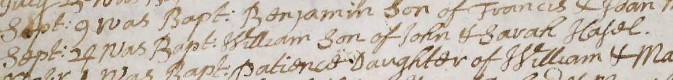 Sept: 9 was Bapt: Benjamin Son of Francis & Joan
Sept: 24 was Bapt: William Son of John & Sarah Hasel.
was Bapt: Patience Daughter of William & Ma